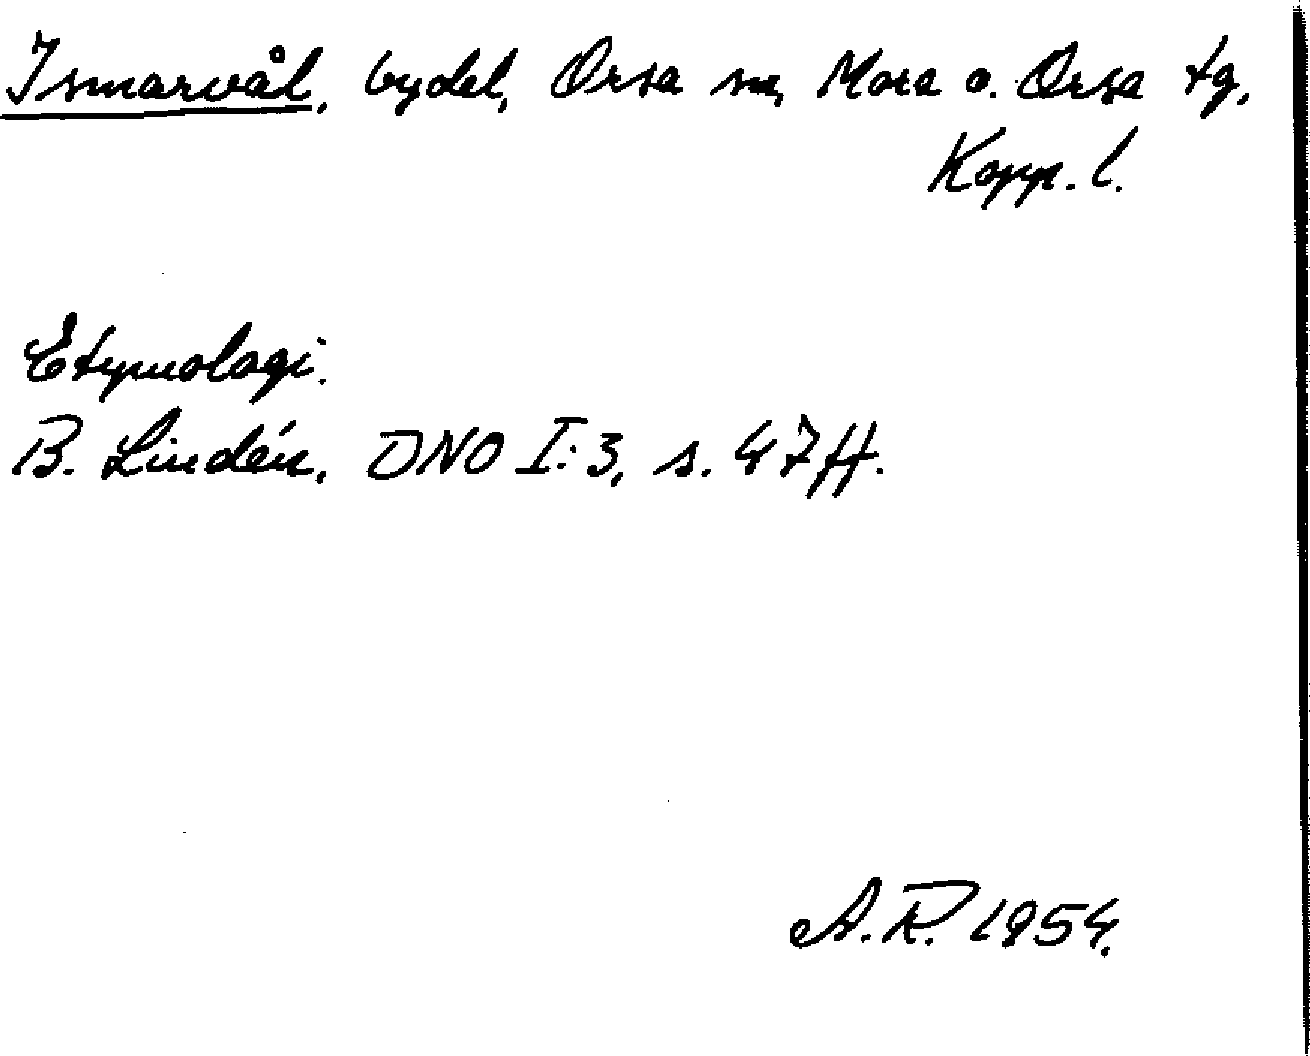 Ismarvål, bydel, Orsa sn, Mora o. Orsa tg,
Kopp. l.
Etymologi:
B. Lindén, DNO I:3, s. 47ff.
A.R. 1954.